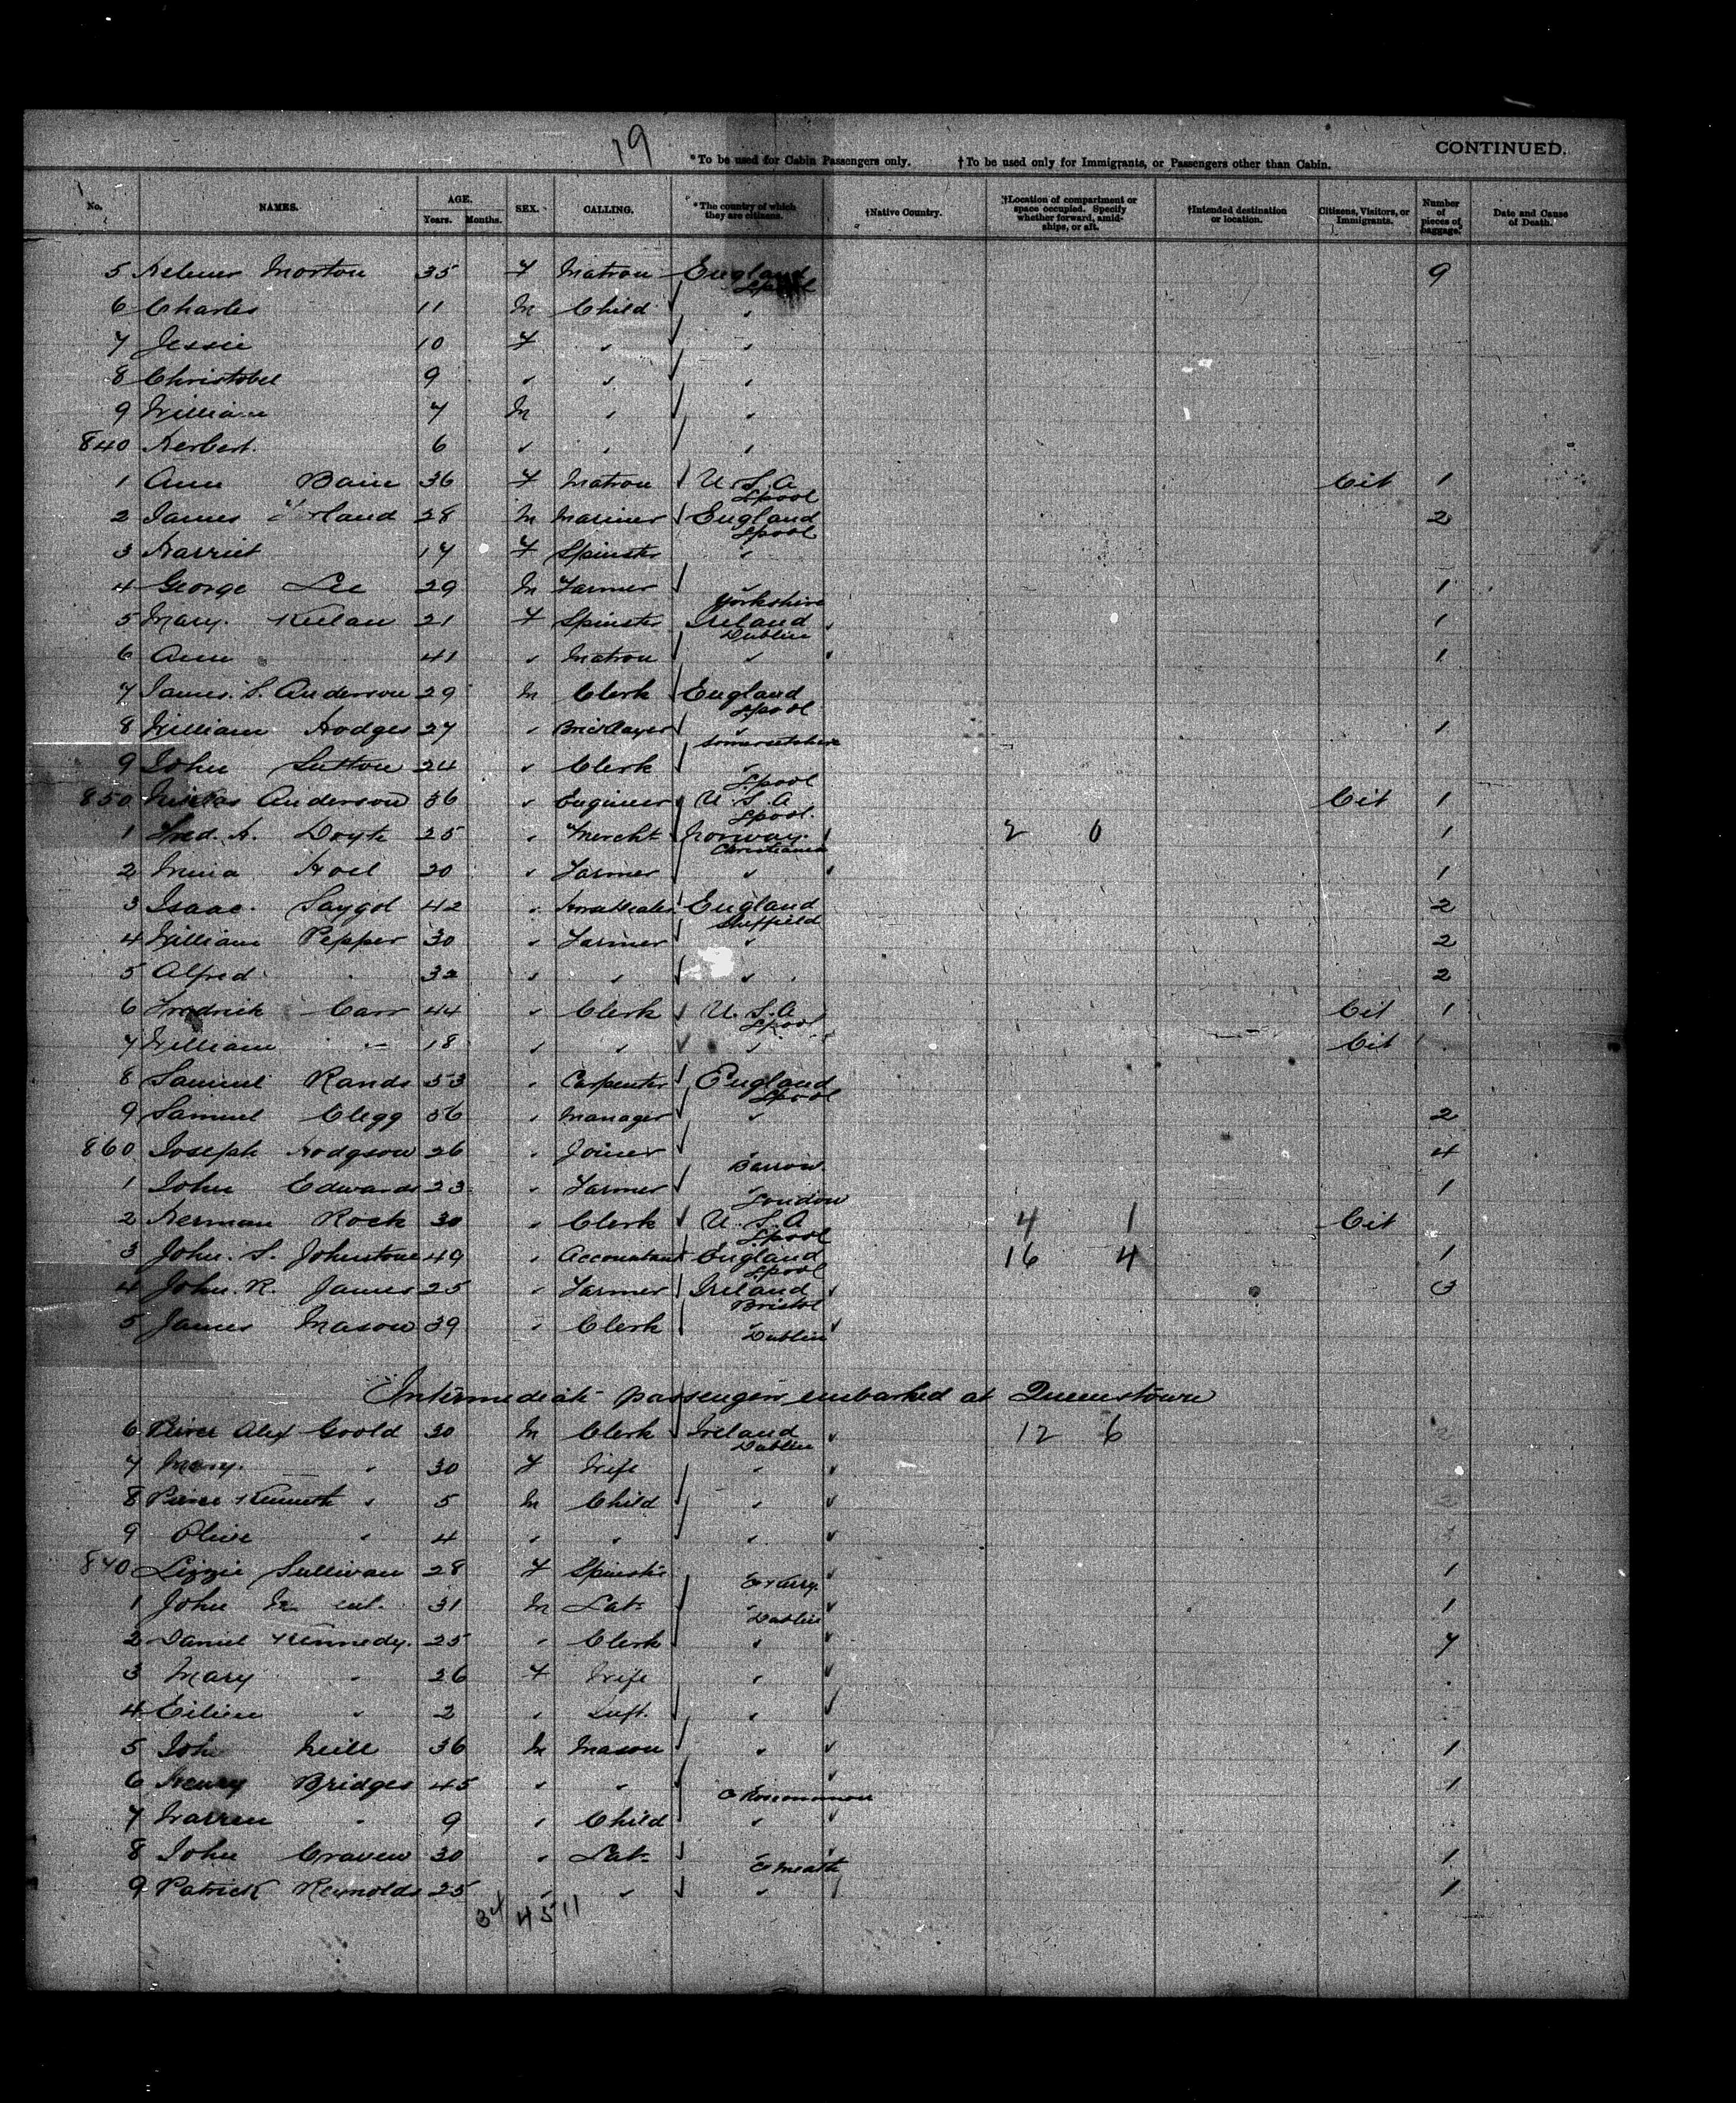 19
*To be used for Cabin Passengers only. †To be used only for Immigrants, or Passengers other than Cabin. CONTINUED.
No. NAMES. AGE. Years. Months. SEX. CALLING. *The country of which they are citizens. †Native Country. †Location of compartment or space occupied. Specify whether forward, amidships, or aft. †Intended destination or location. Citizens, Visitors, or Immigrants. Number of pieces of baggage. Date and Cause of Death.
5 Morton 35 F Matron England Lpool 9
6 Charles 11 M Child "
7 Jessie 10 F " "
8 Christobel 9 " " "
9 William 7 M " "
840 Herbert 6 " " "
1 Ann Bain 36 F Matron U.S.A Lpool Cit 1
2 James 28 M Mariner England Lpool 2
3 Harriet 17 F Spinster "
4 George Lee 29 M Farmer " Yorkshire 1
5 Mary 21 F Spinster Ireland Dublin 1
6 Ann 41 " Matron " 1
7 James S. Anderson 29 M Clerk England Lpool
8 William Hodges 27 " Bricklayer " Somersetshire 1
9 John Sutton 24 " Clerk " Lpool
850 Anderson 36 " Engineer U.S.A Lpool. Cit 1
1 Fred. A. 25 " Mercht Norway. Christiania 2 0 1
2 Hoel 20 " Farmer " 1
3 Isaac Saygol 42 " England Sheffield 2
4 William Pepper 30 " Farmer " 2
5 Alfred " 32 " " " 2
6 Fredrick Carr 44 " Clerk U.S.A Lpool Cit 1
7 William " 18 " " " Cit
8 Samuel Rands 53 " Carpenter England Lpool
9 Samuel Clegg 56 " Manager " 2
860 Joseph Hodgson 26 " Joiner " Barrow 4
1 John Edwards 23 " Farmer " London 1
2 Herman Rock 30 " Clerk U.S.A Lpool 4 1 Cit
3 John. S. Johnstone 49 " Accountant England Lpool 16 4 1
4 John. R. James 25 " Farmer Ireland Bristol 3
5 James Mason 39 " Clerk " Dublin
Intermediate passengers embarked at Queenstown
6 Alex Goold 30 M Clerk Ireland Dublin 12 6
7 Mary " 30 F Wife "
8 Kenneth " 5 M Child "
9 Olive " 4 " " "
870 Lizzie Sullivan 28 F Spinster 1
1 John 31 M Lab " Dublin 1
2 Daniel Kennedy. 25 " Clerk " 7
3 Mary " 26 F Wife "
4 Eileen " 2 " Inft. "
5 Neill 36 M Mason " 1
6 Henry Bridges 45 " " " Co Roscommon 1
7 Warren " 9 " Child "
8 John Craven 30 " Lab " Co Meath 1
9 Patrick Reynolds 25 " " " 1
45 11